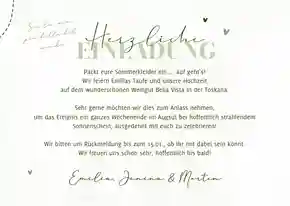 Herzliche
EINLADUNG
Packt eure Sommerkleider ein ... Auf geht's!
Wir feiern Emilias Taufe und unsere Hochzeit
auf dem wunderschönen Weingut Bella Vista in der Toskana.
Sehr gerne möchten wir dies zum Anlass nehmen,
um das Ereignis ein ganzes Wochenende im August bei hoffentlich strahlendem
Sonnenschein, ausgedehnt mit euch zu zelebrieren!
Wir bitten um Rückmeldung bis zum 15.01., ob ihr mit dabei sein könnt.
Wir freuen uns schon sehr, hoffentlich bis bald!
Emilia, Janina & Morten